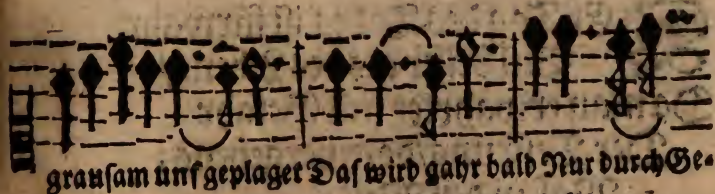 grausam uns geplaget Das wird gahr bald Nur durch Ge-